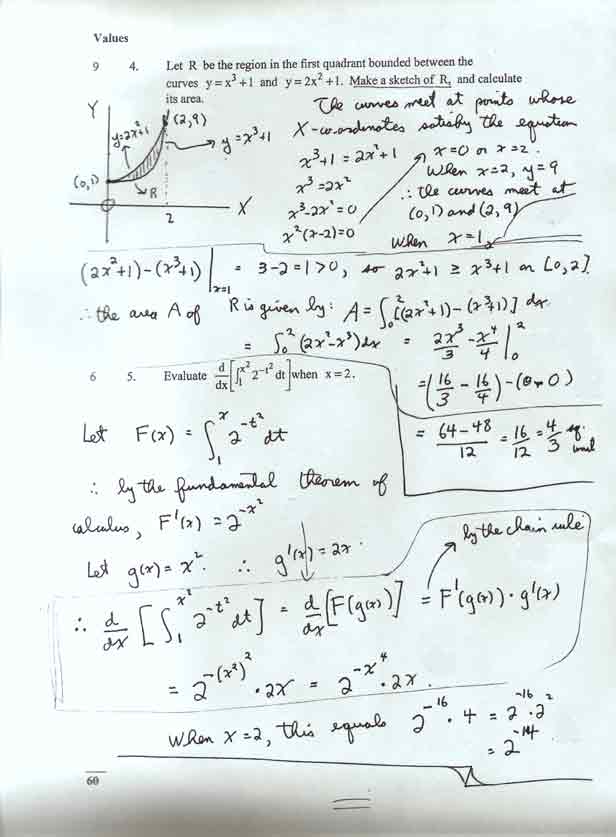 Values
9 4. Let R be the region in the first quadrant bounded between the
curves y = x³ + 1 and y = 2x² + 1. Make a sketch of R, and calculate
its area.
The curves meet at points whose
X-co-ordinates satisfy the equation
x³+1 = 2x²+1
x³ = 2x²
x³-2x² = 0
x²(x-2) = 0
x = 0 or x = 2.
When x = 2, y = 9
∴ the curves meet at
(0,1) and (2,9)
When x = 1,
Y
(2,9)
y = 2x²+1
y = x³+1
(0,1)
R
O
2
X
(2x²+1)-(x³+1)|ₓ₌₁ = 3-2 = 1 > 0, so 2x²+1 ≥ x³+1 on [0,2].
∴ the area A of R is given by: A = ∫₀² [(2x²+1)-(x³+1)] dx
= ∫₀² (2x²-x³)dx = 2x³/3 - x⁴/4 |₀²
= (16/3 - 16/4) - (0-0)
= (64-48)/12 = 16/12 = 4/3 sq. unit
6 5. Evaluate d/dx [∫₁^(x²) 2^(-t²) dt] when x = 2.
Let F(x) = ∫₁^x 2^(-t²) dt
∴ by the fundamental theorem of
calculus, F'(x) = 2^(-x²)
Let g(x) = x². ∴ g'(x) = 2x.
by the chain rule
∴ d/dx [∫₁^(x²) 2^(-t²) dt] = d/dx [F(g(x))] = F'(g(x)) · g'(x)
= 2^(-(x²)²) · 2x = 2^(-x⁴) · 2x.
When x = 2, this equals 2^(-16) · 4 = 2^(-16) · 2²
= 2^(-14)
60